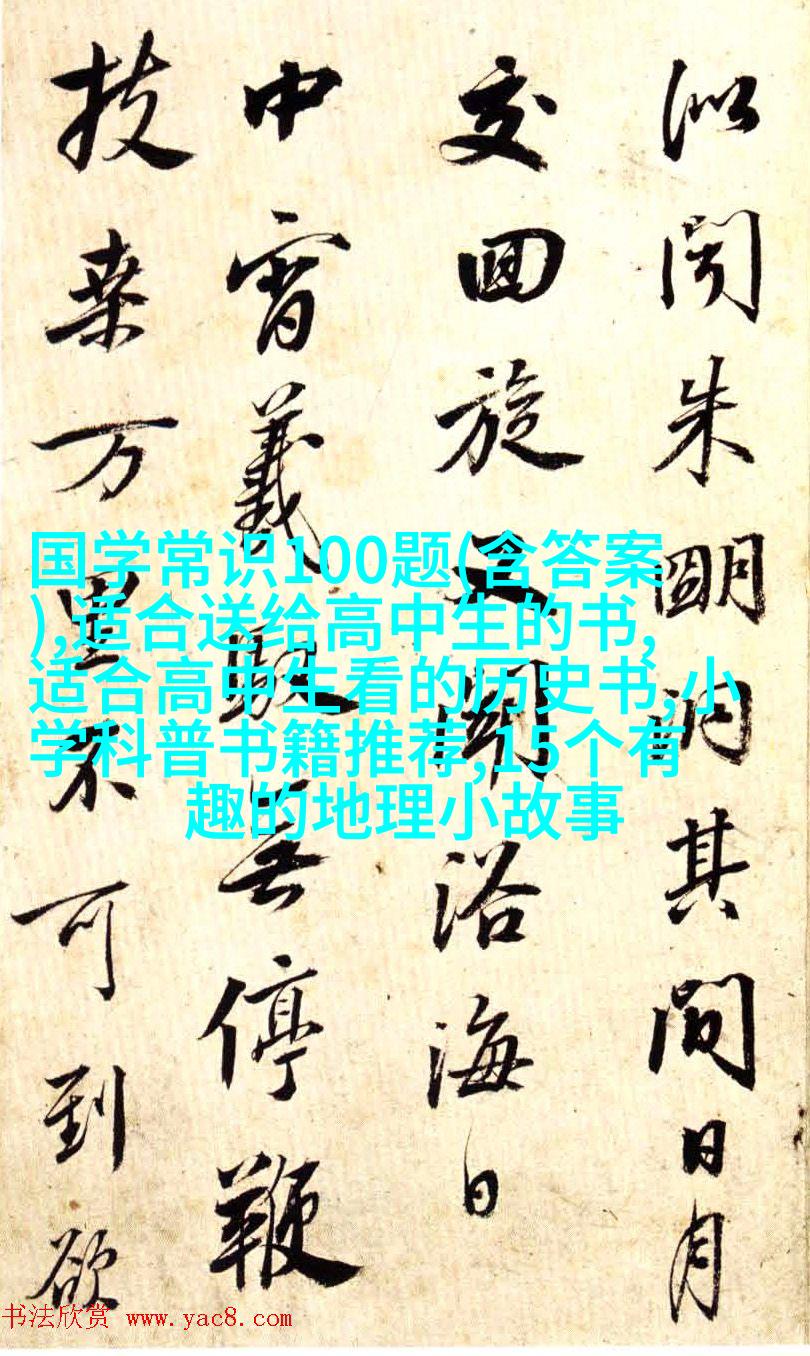 似聞朱明洞其間日月
交回旋又聞浴海日
中宵羲馭無停鞭
扶桒万里不可到欲
国学常识100题(含答案
),适合送给高中生的书,
适合高中生看的历史书,小
学科普书籍推荐,15个有
趣的地理小故事
书法欣赏 www.yac8.com